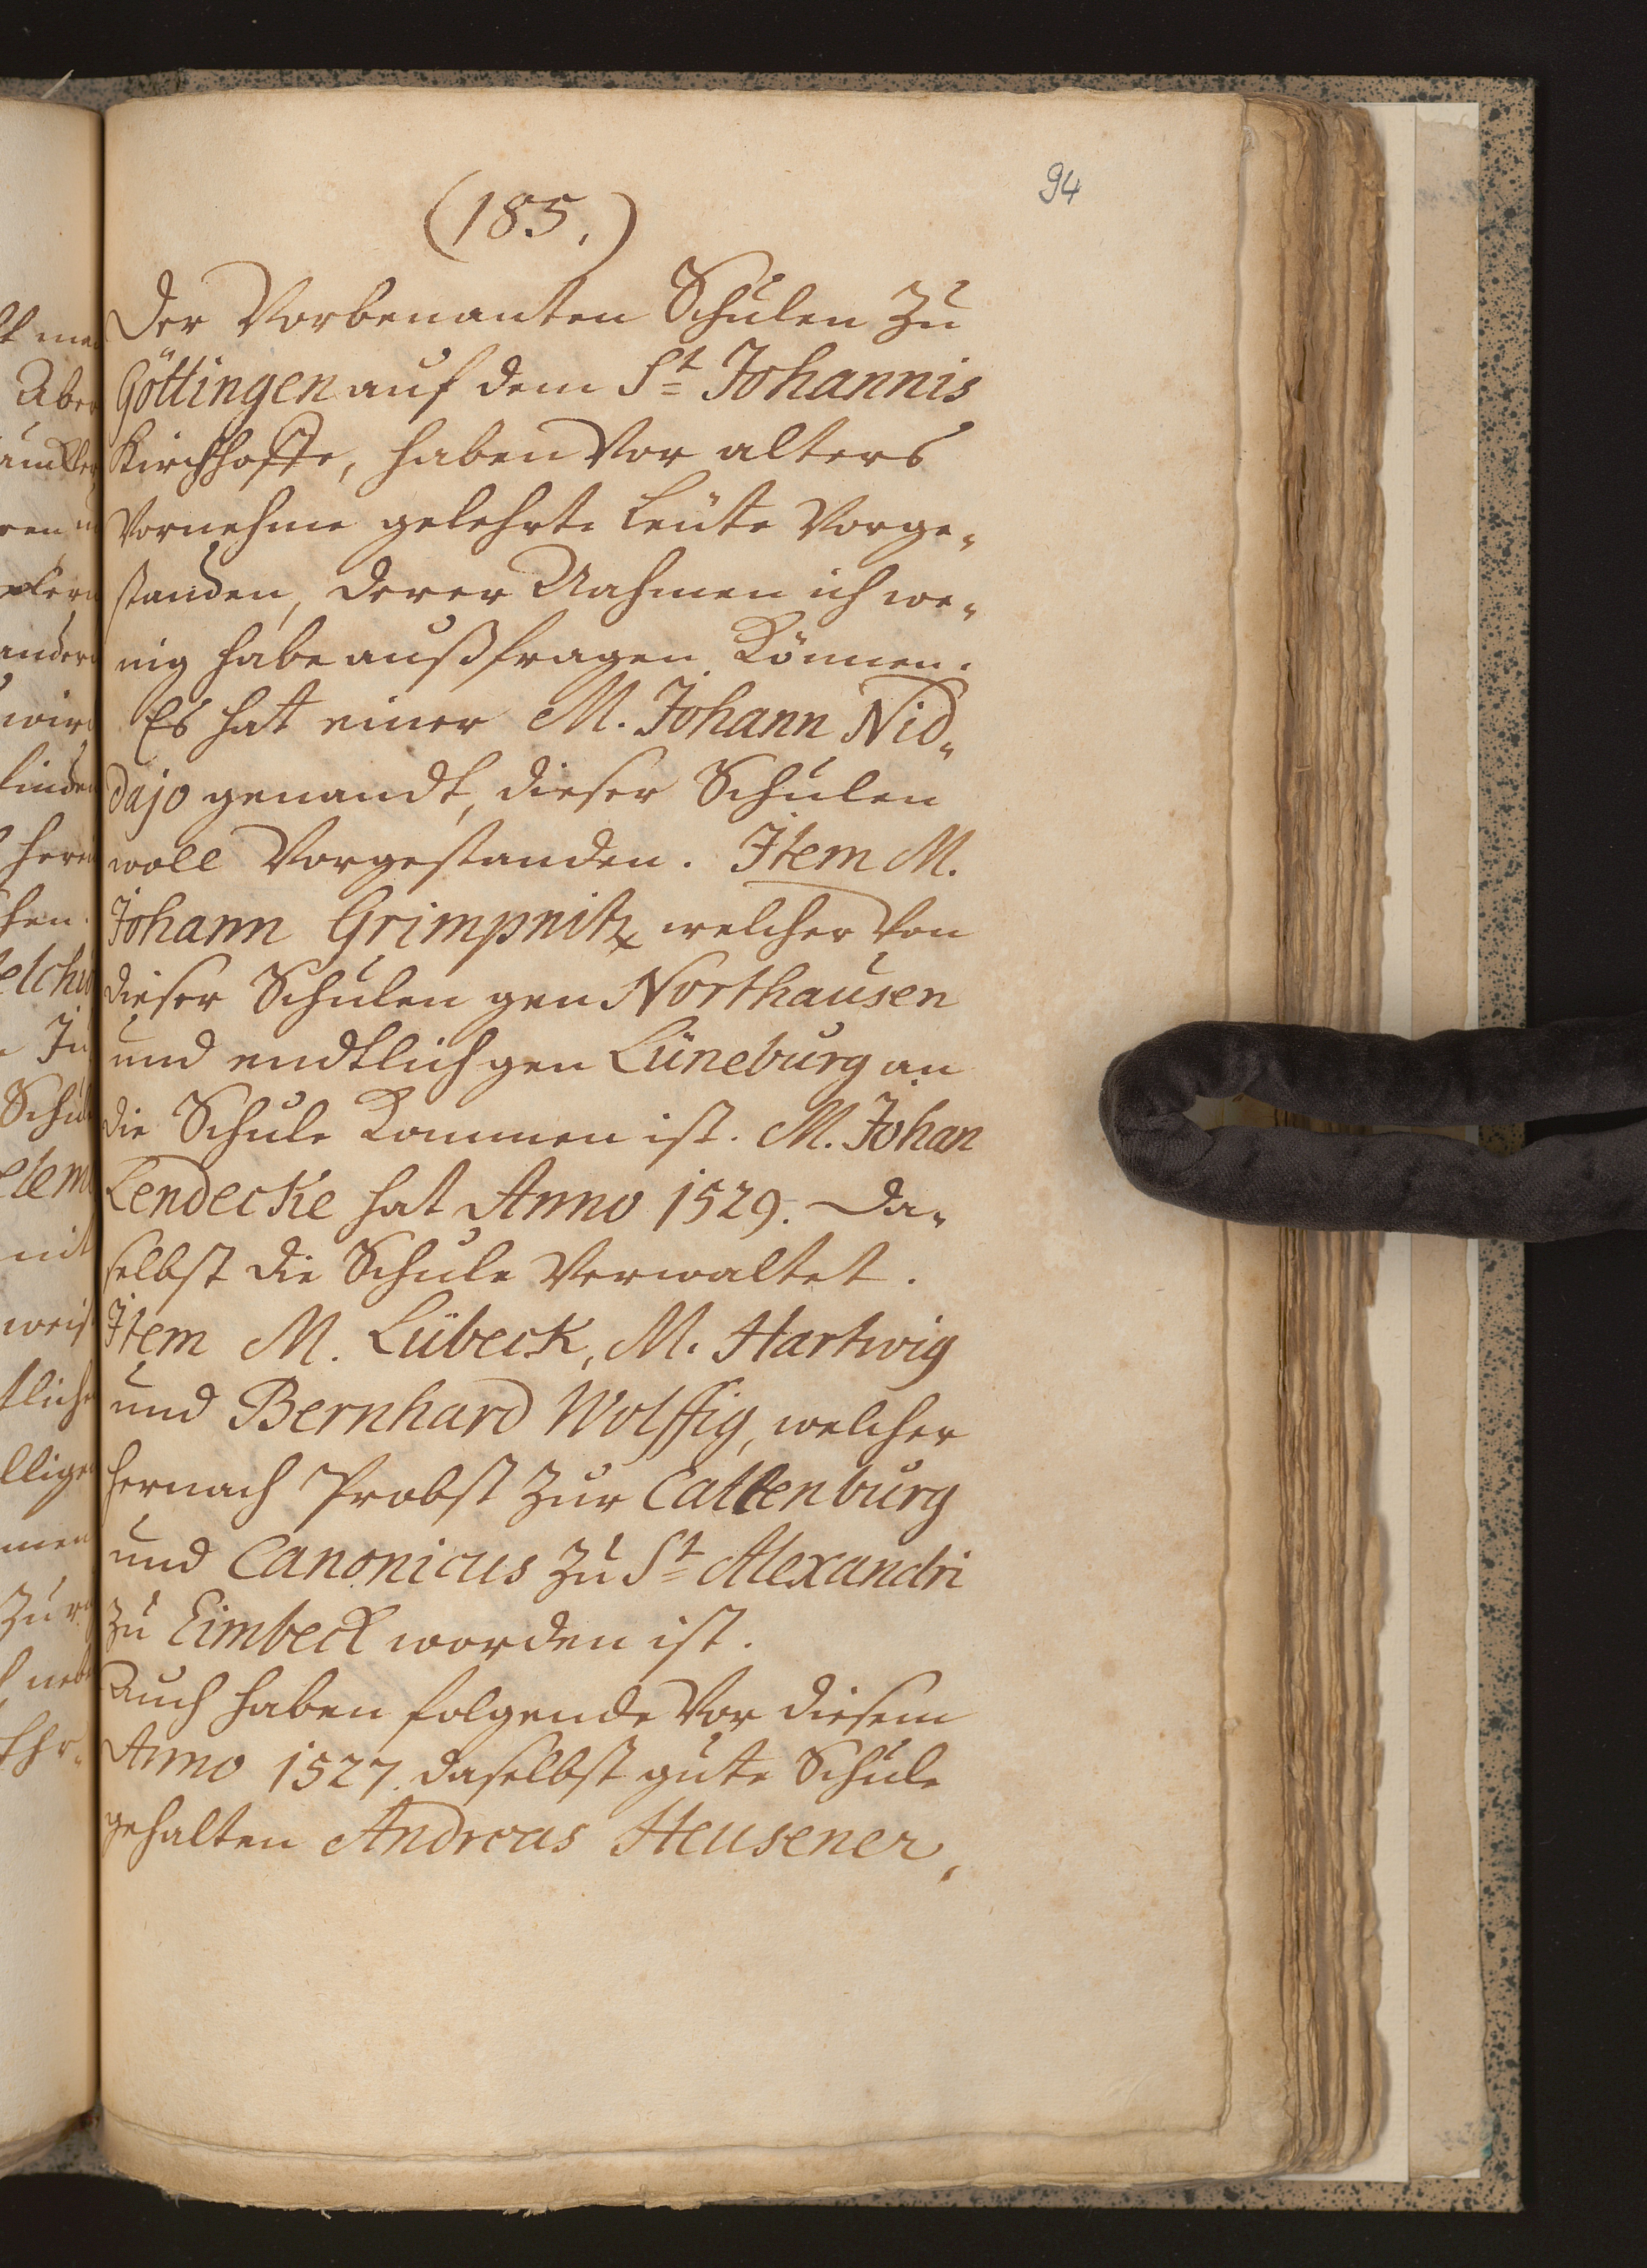 94
(185.)
Der Vorbenanten Schulen zu
Göttingen auf dem St Johannis
Kirchhoffe, haben Vor alters
Vornehme gelehrte Leüte Vorge„
standen, derer Nahmen ich we„
nig habe außfragen Können.
Es hat einer M. Johann Nid„
dajo genandt, dieser Schulen
woll Vorgestanden. Item M.
Johann Grimpnitz welcher Von
dieser Schulen gen Northausen
und endtlich gen Lüneburg an
die Schule Kommen ist. M. Johan
Lendecke hat Anno 1529. Da„
selbst die Schule Verwaltet.
Item M. Lübeck, M. Hartwig
und Bernhard Wolffig, welcher
hernach Probst zur Catlenburg
und Canonicus zu St Alexandri
zu Eimbeck worden ist.
Auch haben folgende Vor diesem
Anno 1527. daselbst gute Schule
gehalten Andreas Heusener,